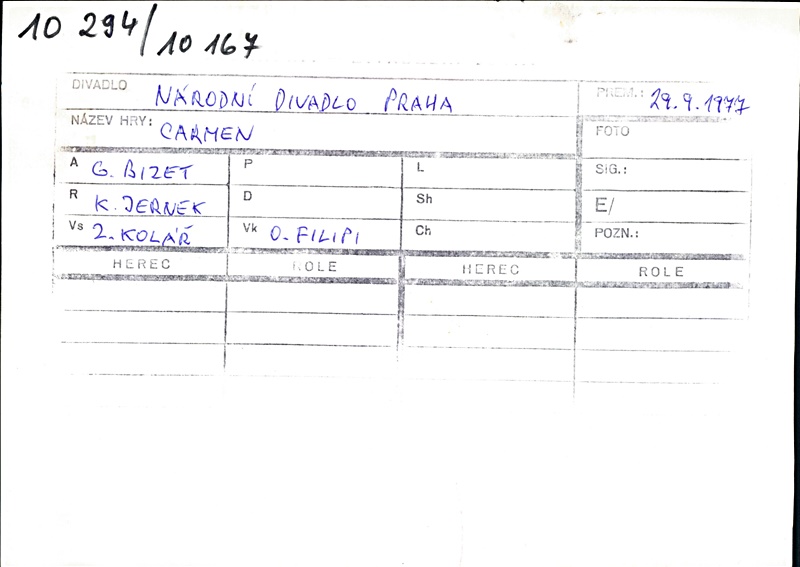 10 294/10 167
DIVADLO NÁRODNÍ DIVADLO PRAHA PREM.: 29.9.1977
NÁZEV HRY: CARMEN FOTO
A G. BIZET P L SIG.:
R K. JERNEK D Sh E/
Vs Z. KOLÁŘ Vk O. FILIPI Ch POZN.:
HEREC ROLE HEREC ROLE